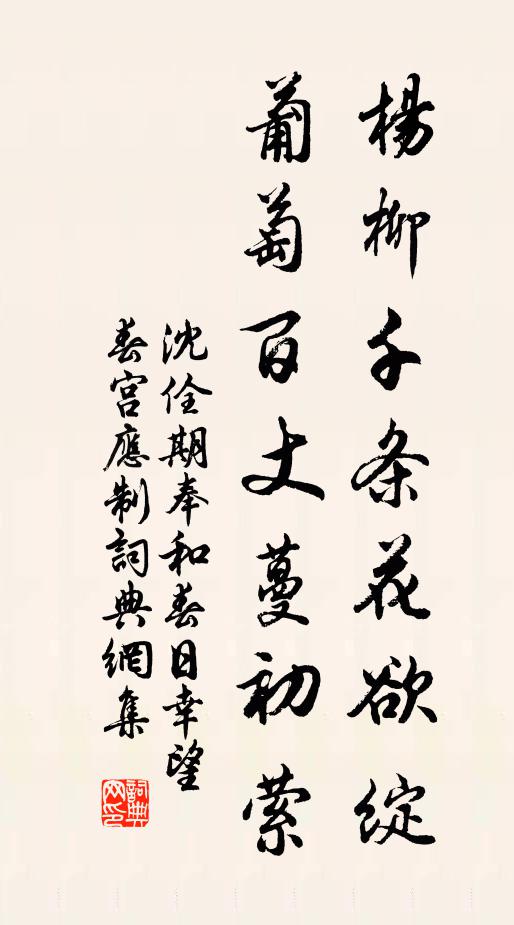 楊柳千条花欲綻
葡萄百丈蔓初萦
沈佺期奉和春日幸望
春宫應制詞典網集
詞典
网印